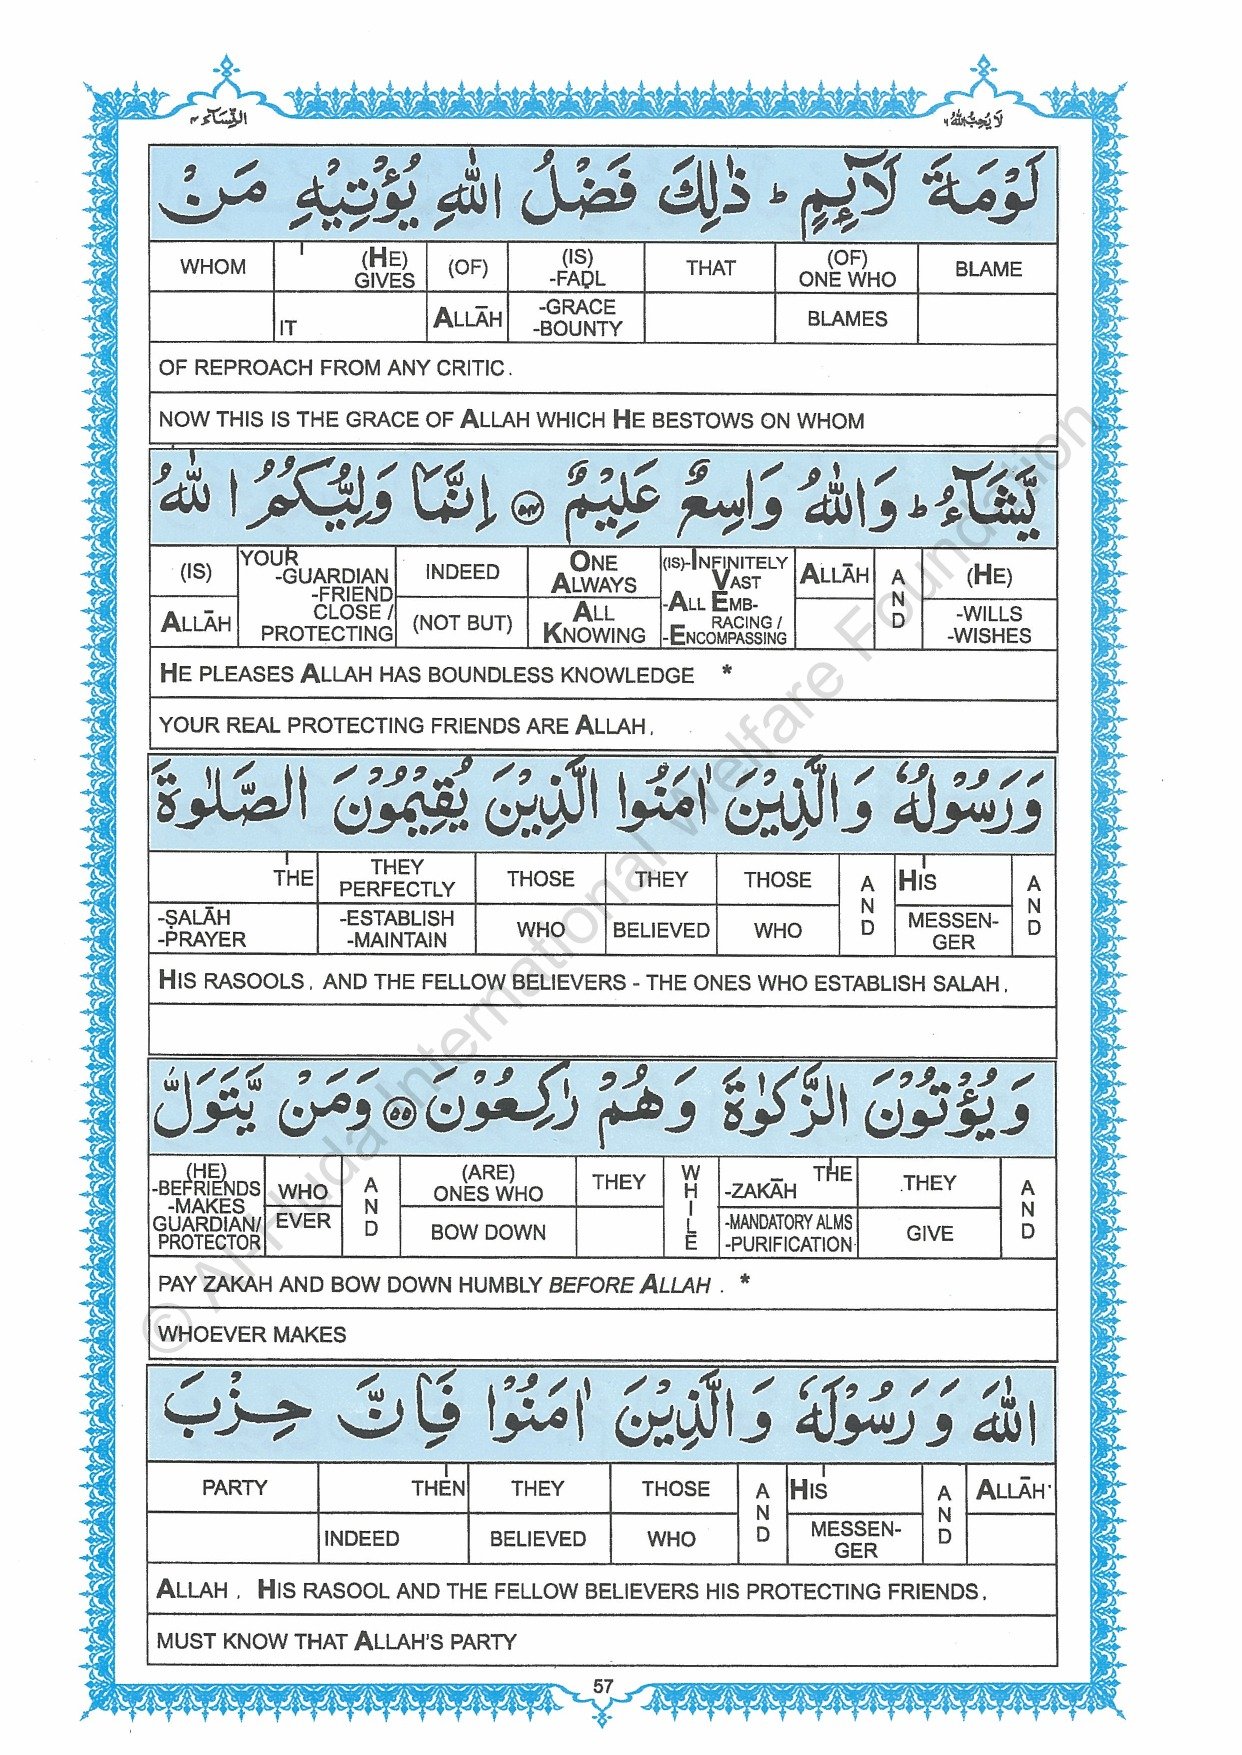 النِّسَآء ٤
لَا يُحِبُّ اللهُ ٦
لَوْمَةَ لَآئِمٍ ؕ ذٰلِكَ فَضْلُ اللّٰهِ يُؤْتِيْهِ مَنْ
WHOM (HE) GIVES (OF) (IS) -FAḌL THAT (OF) ONE WHO BLAME
IT ALLĀH -GRACE -BOUNTY BLAMES
OF REPROACH FROM ANY CRITIC.
NOW THIS IS THE GRACE OF ALLAH WHICH HE BESTOWS ON WHOM
يَّشَآءُ ؕ وَاللّٰهُ وَاسِعٌ عَلِيْمٌ ﴿۵۴﴾ اِنَّمَا وَلِيُّكُمُ اللّٰهُ
(IS) YOUR -GUARDIAN -FRIEND INDEED ONE ALWAYS (IS)-INFINITELY VAST ALLĀH AND (HE)
ALLĀH CLOSE / PROTECTING (NOT BUT) ALL KNOWING -ALL EMB-RACING / -ENCOMPASSING -WILLS -WISHES
HE PLEASES ALLAH HAS BOUNDLESS KNOWLEDGE *
YOUR REAL PROTECTING FRIENDS ARE ALLAH,
وَرَسُوْلُهٗ وَالَّذِيْنَ اٰمَنُوا الَّذِيْنَ يُقِيْمُوْنَ الصَّلٰوةَ
THE THEY PERFECTLY THOSE THEY THOSE AND HIS AND
-ṢALĀH -PRAYER -ESTABLISH -MAINTAIN WHO BELIEVED WHO MESSEN-GER
HIS RASOOLS, AND THE FELLOW BELIEVERS - THE ONES WHO ESTABLISH SALAH,
وَيُؤْتُوْنَ الزَّكٰوةَ وَهُمْ رٰكِعُوْنَ ﴿۵۵﴾ وَمَنْ يَّتَوَلَّ
(HE) -BEFRIENDS -MAKES WHO AND (ARE) ONES WHO THEY WHILE THE -ZAKĀH THEY AND
GUARDIAN/ PROTECTOR EVER BOW DOWN -MANDATORY ALMS -PURIFICATION GIVE
PAY ZAKAH AND BOW DOWN HUMBLY BEFORE ALLAH . *
WHOEVER MAKES
اللّٰهَ وَرَسُوْلَهٗ وَالَّذِيْنَ اٰمَنُوْا فَاِنَّ حِزْبَ
PARTY THEN THEY THOSE AND HIS AND ALLĀH
INDEED BELIEVED WHO MESSEN-GER
ALLAH, HIS RASOOL AND THE FELLOW BELIEVERS HIS PROTECTING FRIENDS,
MUST KNOW THAT ALLAH'S PARTY
57
© Al-Huda International Welfare Foundation